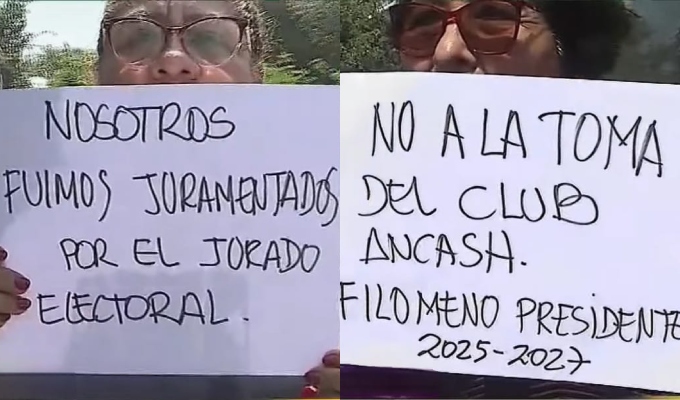 NOSOTROS
FUIMOS JURAMENTADOS
POR EL JURADO
ELECTORAL.
NO A LA TOMA
DEL CLUB
ANCASH.
FILOMENO PRESIDENTE
2025-2027